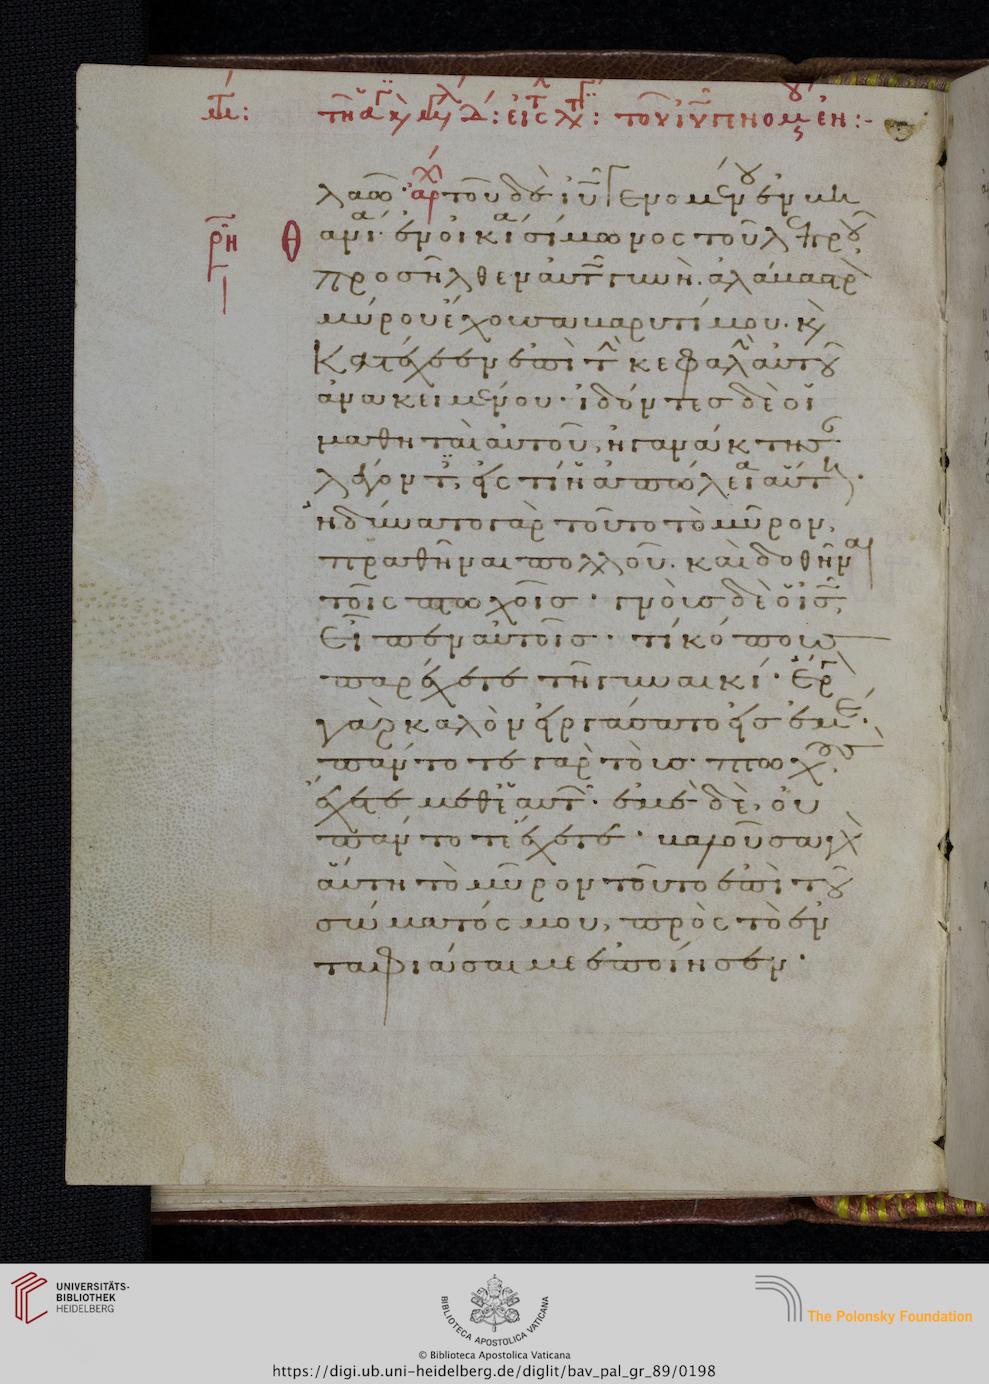 λαῶ· τοῦ δὲ ἰῦ γενομένου ἐν βη
θ
ανία· ἐν οἰκία σίμωνος τοῦ λεπροῦ
προσῆλθεν αὐτῶ γυνὴ. ἀλάβαστρον
μύρου ἔχουσα βαρυτίμου. κ
κατέχεεν ἐπὶ τ κεφαλὴ αὐτοῦ
ἀνακειμένου· ἰδόντες δὲ οἱ
μαθηταὶ αὐτοῦ, ἠγανάκτησ
λέγοντ, εἰς τί ἡ ἀπώλεια αὕτη.
ἠδύνατο γὰρ τοῦτο τὸ μῦρον,
πραθῆναι πολλοῦ. καὶ δοθῆναι
τοῖς πτωχοῖς· γνοὺς δὲ ὁ ἰς
εἶπεν αὐτοῖς· τί κόπους
παρέχετε τῆ γυναικί· ἔργ
γὰρ καλὸν εἰργάσατο εἰς ἐμέ·
πάντοτε γὰρ τοὺς πτωχοὺς
ἔχετε μεθ αὐτ· ἐμὲ δὲ, οὐ
πάντοτε ἔχετε· βαλοῦσα γὰρ
αὕτη τὸ μῦρον τοῦτο ἐπὶ τοῦ
σώματός μου, πρὸς τὸ ἐν
ταφιάσαι με ἐποίησεν·
UNIVERSITÄTS-
BIBLIOTHEK
HEIDELBERG
BIBLIOTECA APOSTOLICA VATICANA
The Polonsky Foundation
© Biblioteca Apostolica Vaticana
https://digi.ub.uni-heidelberg.de/diglit/bav_pal_gr_89/0198